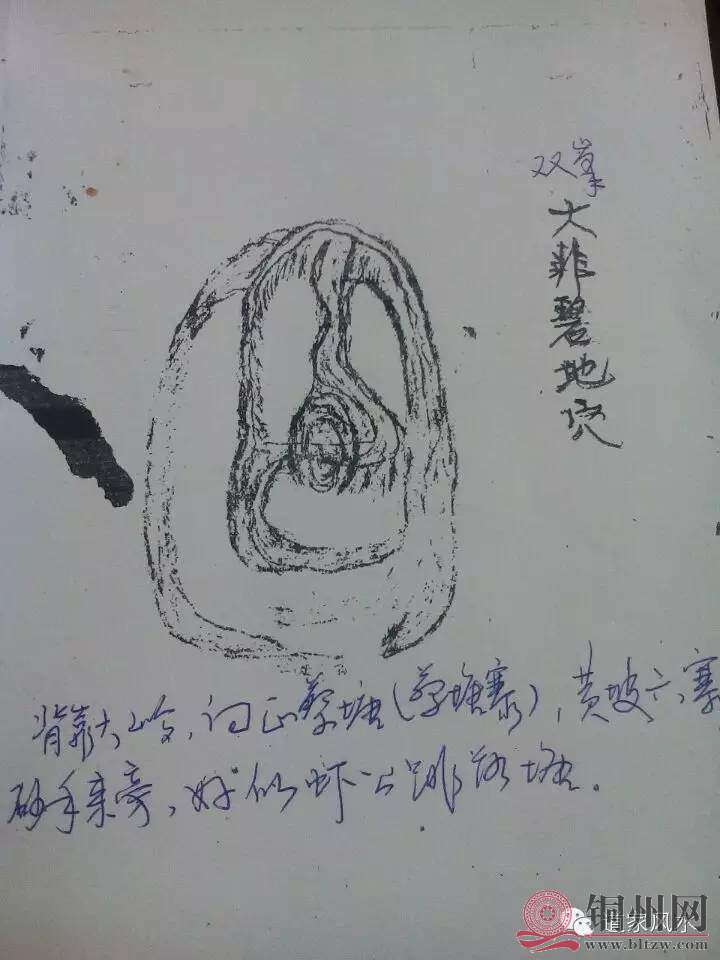 双峯
大非碧地穴
背靠大岭，向正蔡塘(草塘寨)，黄坡六寨
砂手来旁，好似虾公跳塘。
铜州网
道家风水
www.bltzw.com